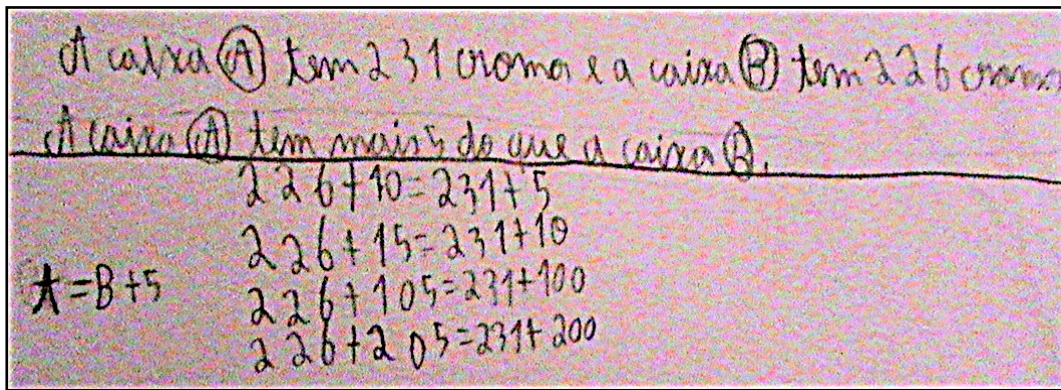 A caixa A tem 231 cromos e a caixa B tem 226 cromo
A caixa A tem mais 5 do que a caixa B.
226+10=231+5
226+15=231+10
A=B+5
226+105=231+100
226+205=231+200